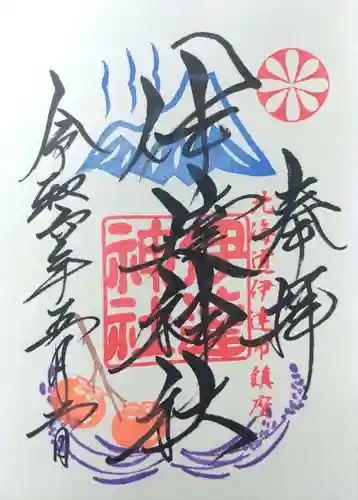 奉拝
北海道伊達市鎮座
伊達神社
伊達
神社
令和 年五月 日